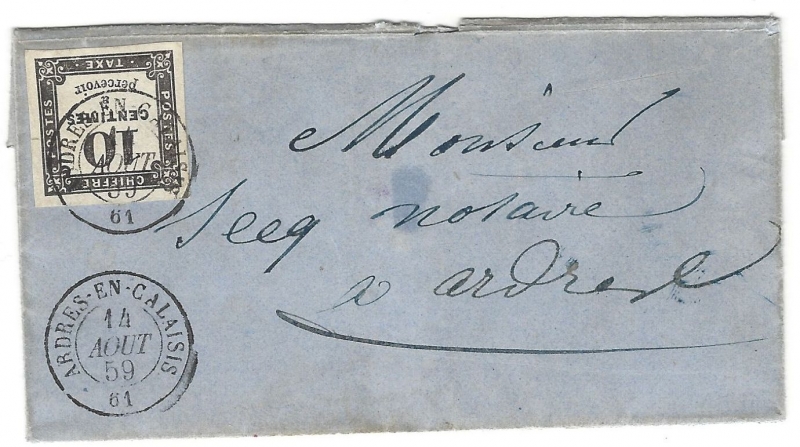 CHIFFRE TAXE
POSTES POSTES
10
CENTIMES
à
percevoir
ARDRES-EN-CALAISIS
AOUT
59
61
Monsieur
Seeq notaire
a ardres
ARDRES-EN-CALAISIS
14
AOUT
59
61